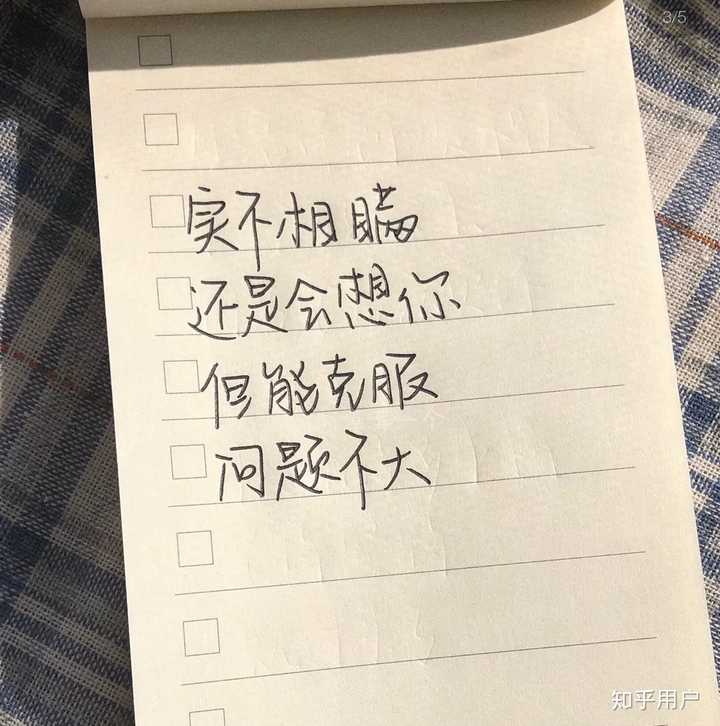 3/5
实不相瞒
还是会想你
但能克服
问题不大
知乎用户